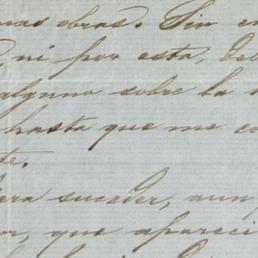 mas obras. Sin em
, ni por esta, del
alguno sobre la
hasta que me co
te.
era suceder, aun
or, que apareci